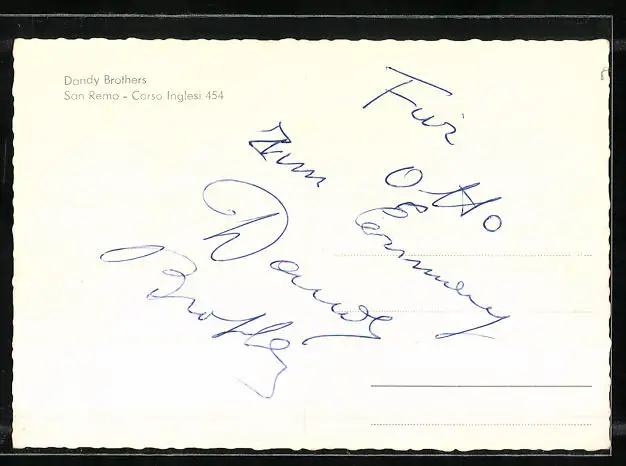 Dandy Brothers
San Remo - Corso Inglesi 454
Für
Otto
zum
Dandy
Brothers